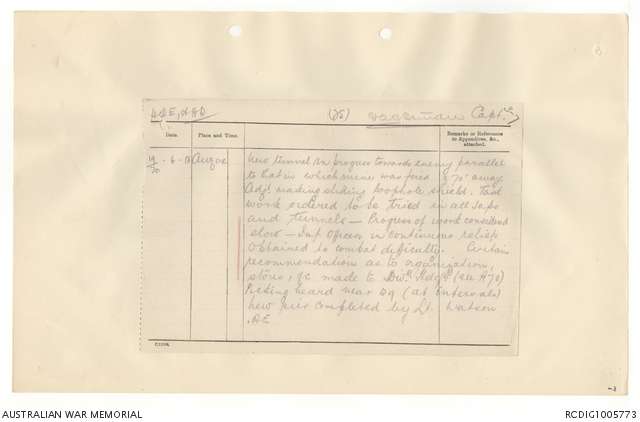 (25)
Capt.
Date.
Place and Time.
Remarks or References
to Appendices, &c.,
attached.
Anzac
New tunnel in progress towards enemy parallel
to that in which mine was fired & 70' away
Adjt making sliding loophole shield. Task
work ordered to be tried in all saps
and tunnels — Progress of work considered
slow — Inf officer in continuous reliefs
obtained to combat difficulty. Certain
recommendations as to organization,
stores, &c made to Divl Hdqrs (see A70)
Picking heard near D9 (at intervals)
New pier completed by Lt. Watson
AUSTRALIAN WAR MEMORIAL
RCDIG1005773